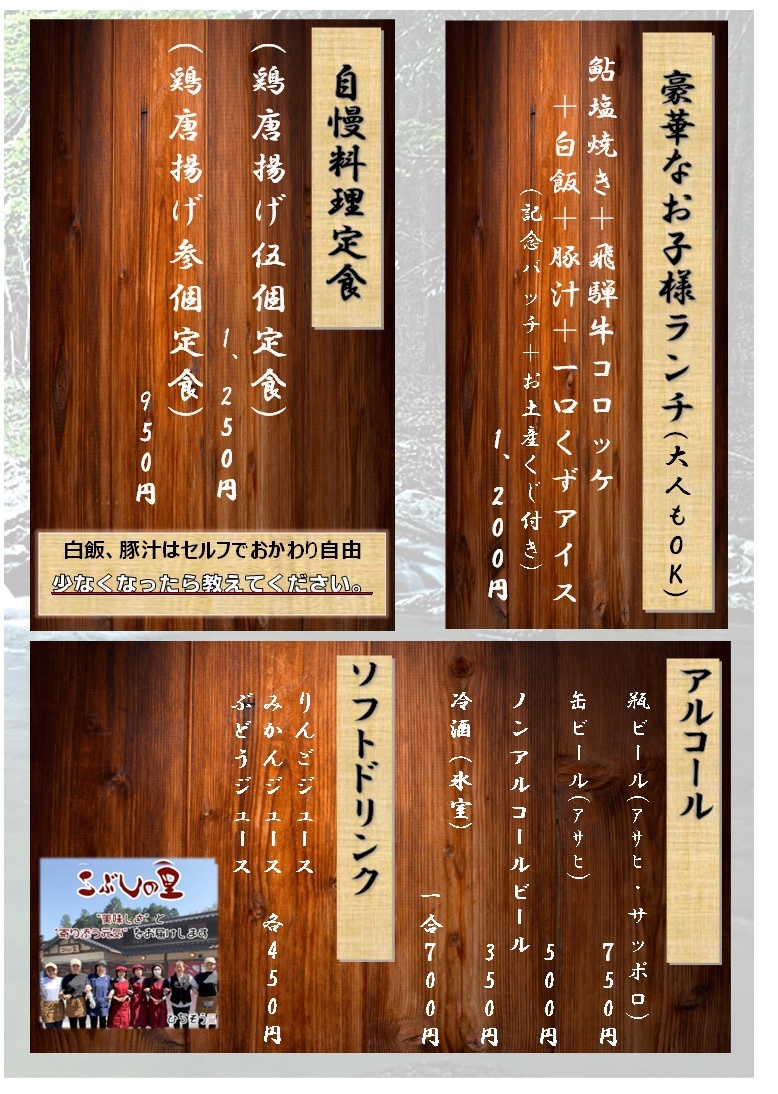 豪華なお子様ランチ(大人もOK)
鮎塩焼き+飛騨牛コロッケ
+白飯+豚汁+一口くずアイス
(記念バッチ+お土産くじ付き)
1、200円
自慢料理定食
(鶏唐揚げ伍個定食)
1、250円
(鶏唐揚げ参個定食)
950円
白飯、豚汁はセルフでおかわり自由
少なくなったら教えてください。
アルコール
瓶ビール(アサヒ・サッポロ)
750円
缶ビール(アサヒ)
500円
ノンアルコールビール
350円
冷酒(氷室)
一合700円
ソフトドリンク
りんごジュース
みかんジュース 各450円
ぶどうジュース
こぶしの里
"美味しさ"と
"寄り添う元気"をお届けします